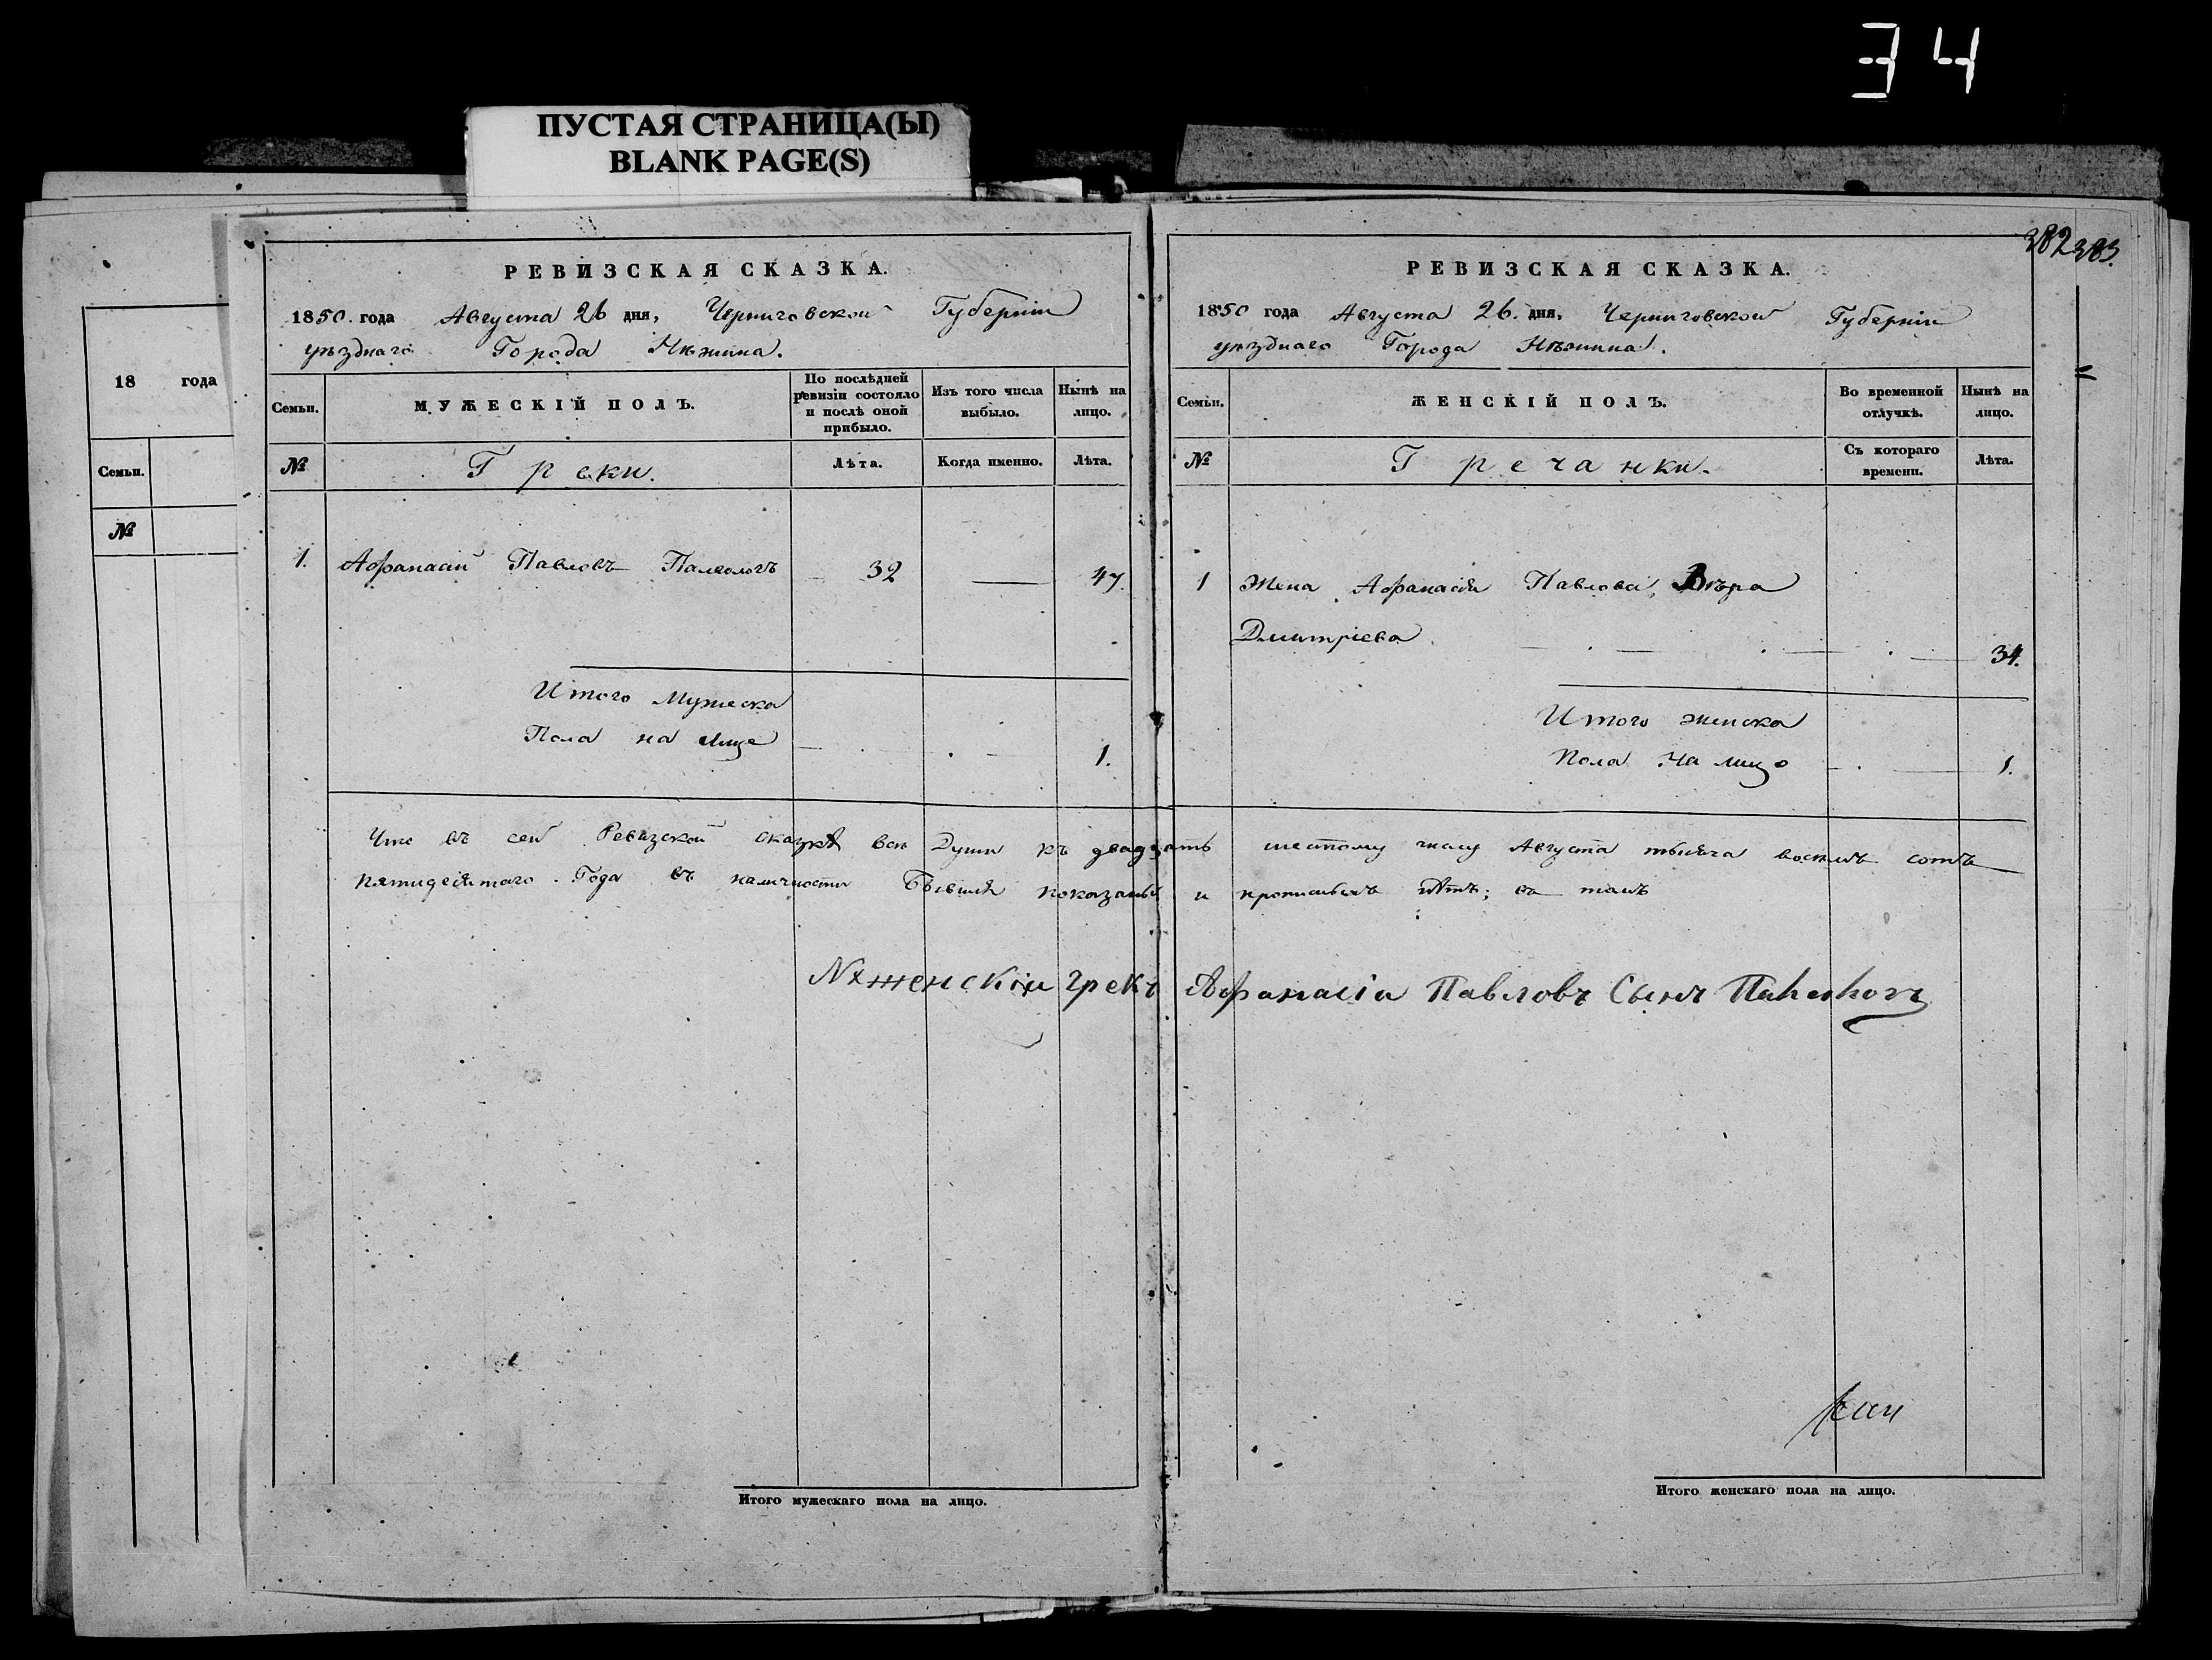 34
ПУСТАЯ СТРАНИЦА(Ы)
BLANK PAGE(S)
18 года
Семьи.
№
РЕВИЗСКАЯ СКАЗКА.
1850. года Августа 26 дня, Черниговской Губерніи
уѣзднаго Города Нѣжина.
Семьи.
МУЖЕСКІЙ ПОЛЪ.
По послѣдней ревизіи состояло и послѣ оной прибыло.
Изъ того числа выбыло.
Нынѣ на лицо.
№
Греки.
Лѣта.
Когда именно.
Лѣта.
1. Афанасій Павловъ Палеологъ 32 — 47.
Итого Мужеска
Пола на лице 1.
382 383.
РЕВИЗСКАЯ СКАЗКА.
1850 года Августа 26. дня, Черниговской Губерніи
уѣзднаго Города Нѣжина.
Семьи.
ЖЕНСКІЙ ПОЛЪ.
Во временной отлучкѣ.
Нынѣ на лицо.
№
Гречанки.
Съ котораго времени.
Лѣта.
1 Жена Афанасія Павлова, Вѣра
Дмитріева 34.
Итого женска
Пола на лицо 1.
Что въ сей Ревизской сказкѣ всѣ Души къ двадцать шестому числу Августа тысяча восемь сотъ
пятидесятаго Года въ наличности Бывшія показаны и
Нѣженскій грекъ Афанасій Павловъ Сынъ Палеологъ
Итого мужескаго пола на лицо.
Итого женскаго пола на лицо.